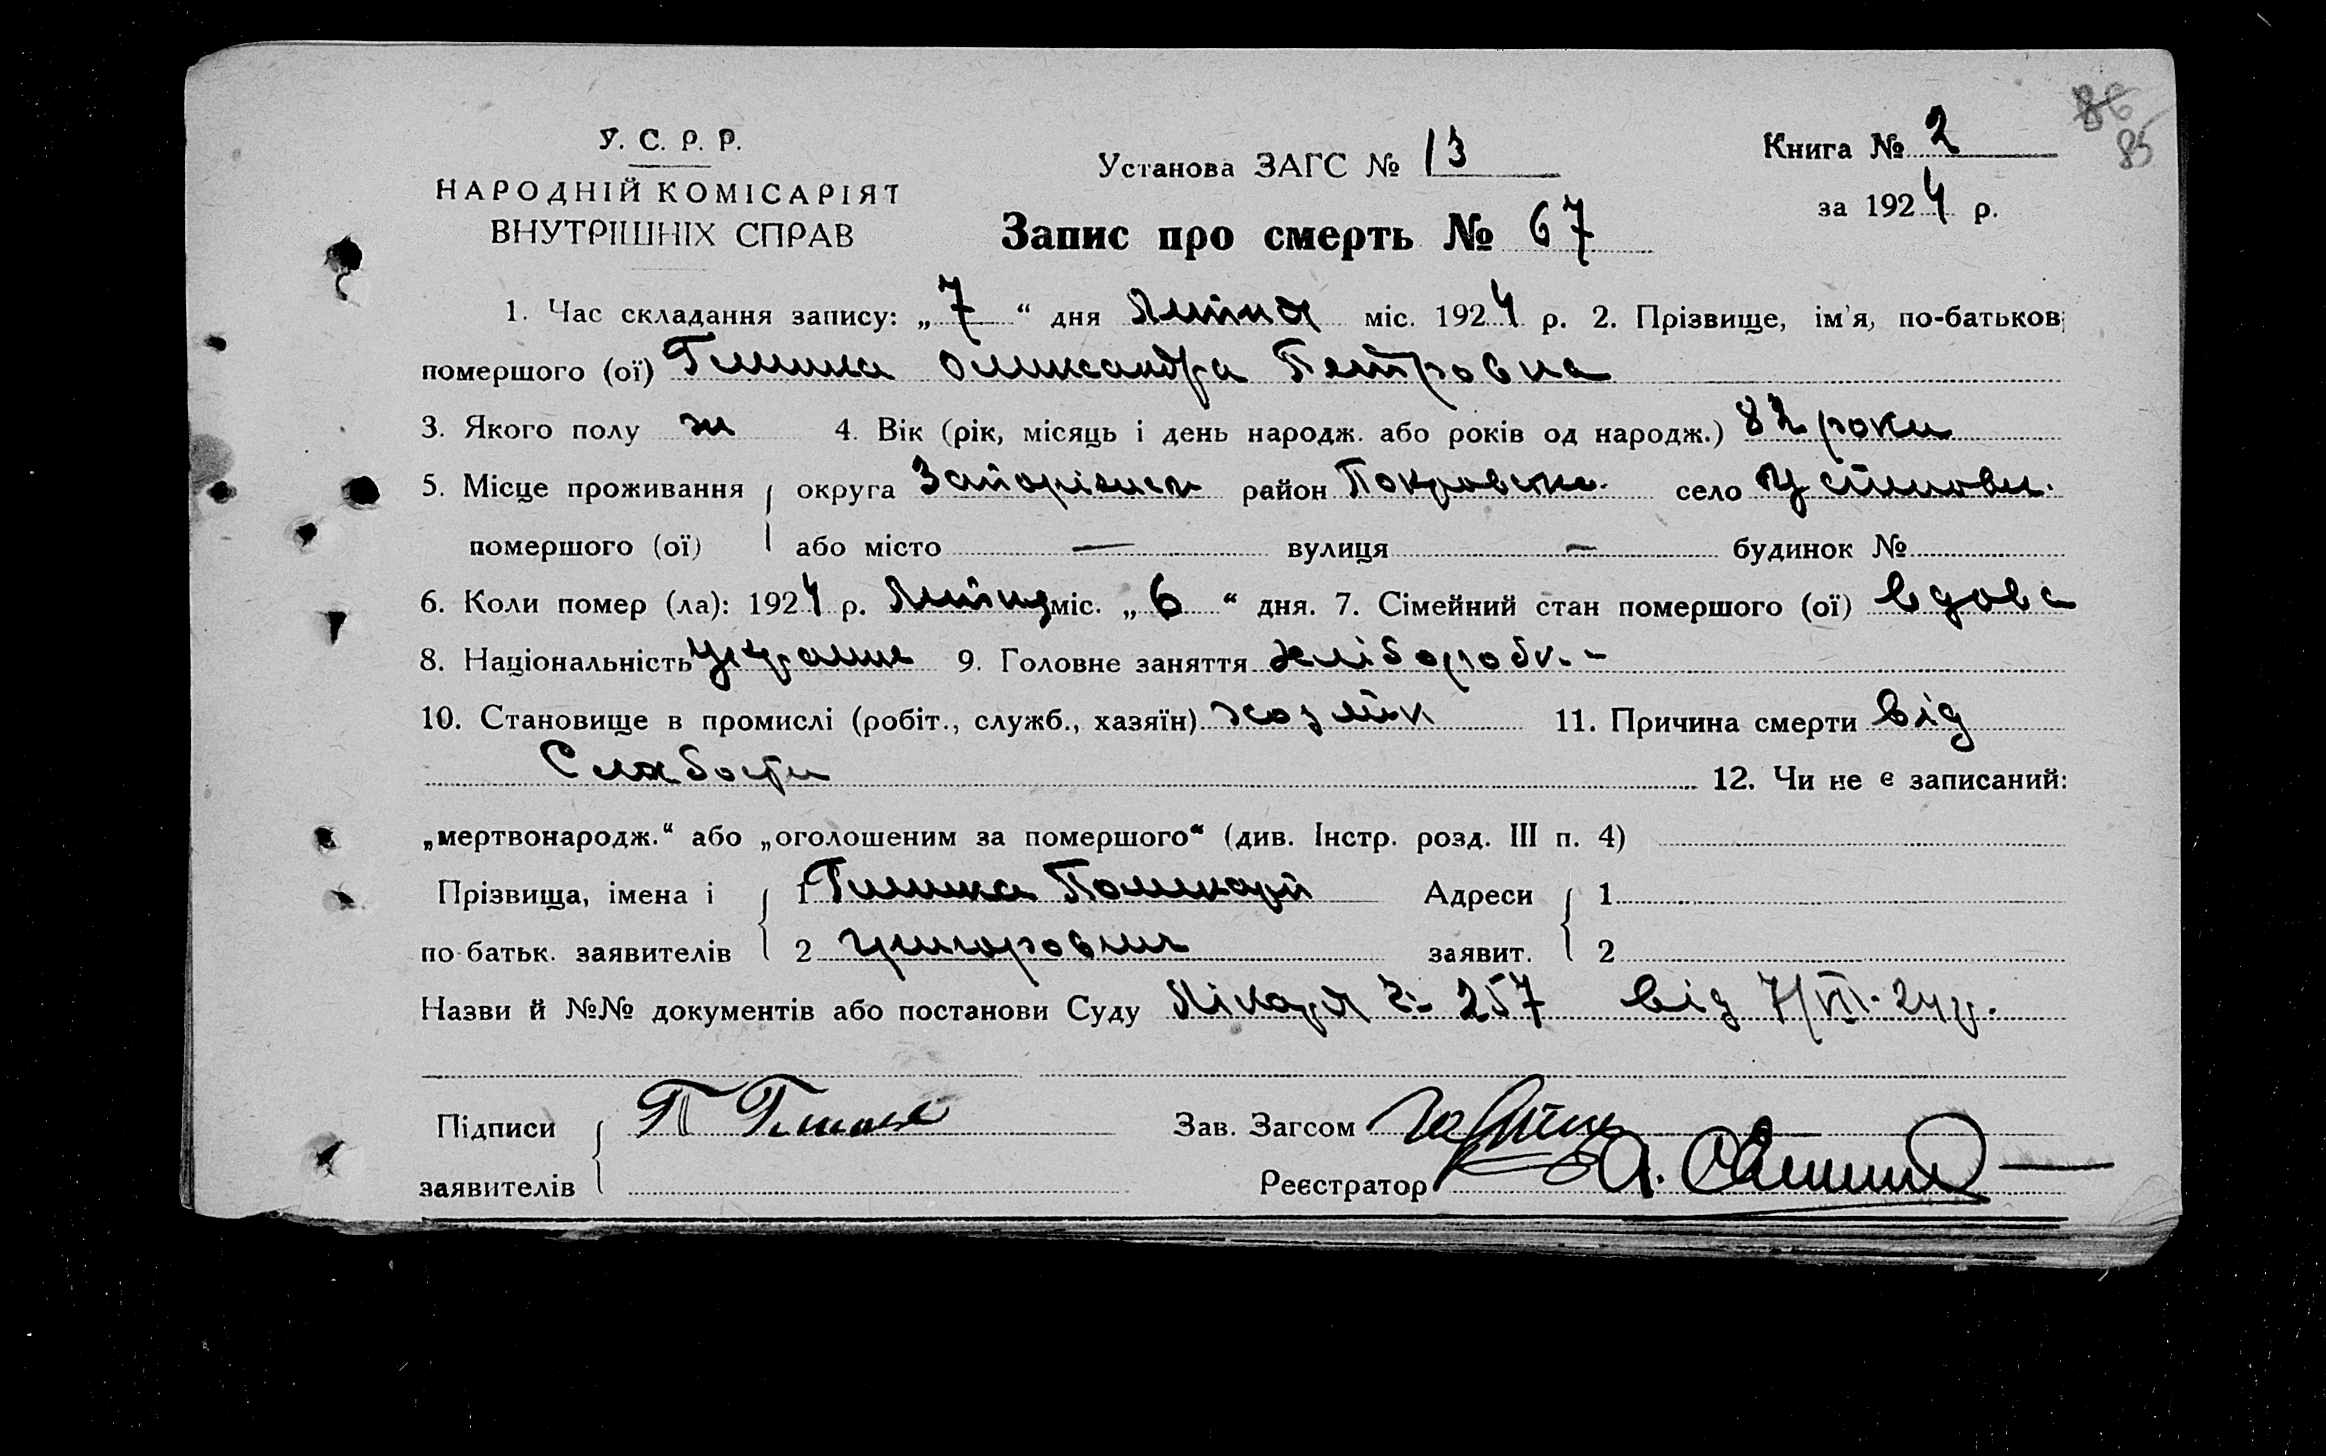 86
85
У. С. Р. Р.
НАРОДНІЙ КОМІСАРІЯТ
ВНУТРІШНІХ СПРАВ
Установа ЗАГС № 13
Книга № 2
за 1924 р.
Запис про смерть № 67
1. Час складання запису: „7“ дня Липня міс. 1924 р. 2. Прізвище, ім'я, по-батьков
помершого (ої) Олександра Петровна
3. Якого полу ж 4. Вік (рік, місяць і день народж. або років од народж.) 82 роки
5. Місце проживання округа Запорізьк район Покровськ. село Устинови.
помершого (ої) або місто — вулиця — будинок №
6. Коли помер (ла): 1924 р. Липня міс. „6“ дня. 7. Сімейний стан помершого (ої) вдова
8. Національність україн 9. Головне заняття хліборобк. -
10. Становище в промислі (робіт., служб., хазяїн) 11. Причина смерти від
Слабости
12. Чи не є записаний:
„мертвонародж.“ або „оголошеним за помершого“ (див. Інстр. розд. III п. 4)
Прізвища, імена і 1 Полікарп Адреси 1
по-батьк. заявителів 2 Григорович заявит. 2
Назви й №№ документів або постанови Суду Лікаря 257 від 7/VII-24 р.
Підписи П Зав. Загсом
заявителів Реєстратор